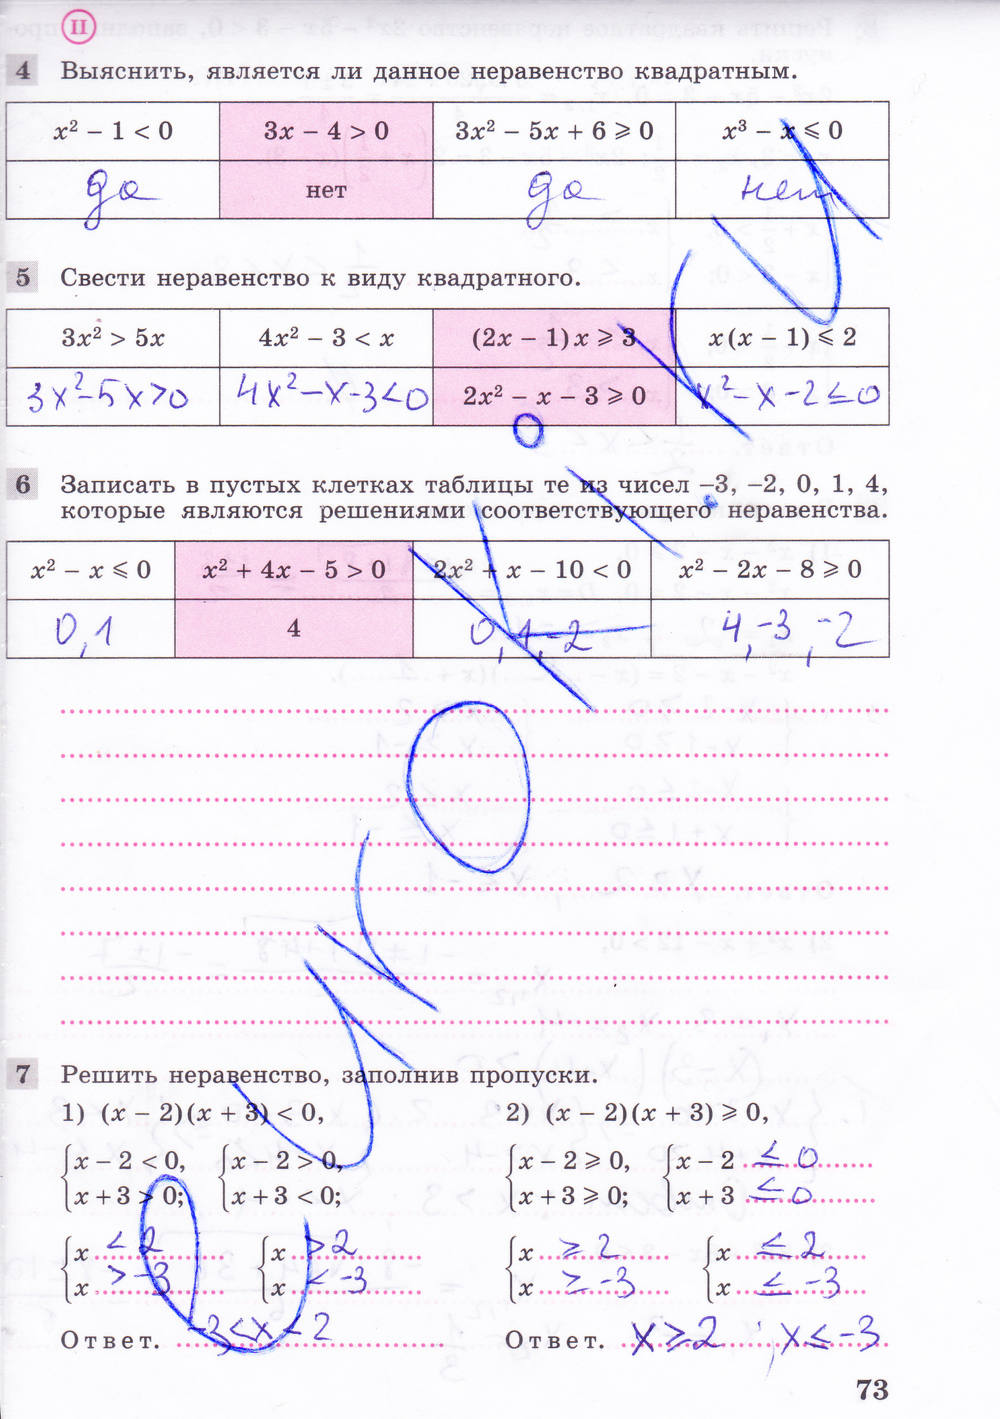 II
4 Выяснить, является ли данное неравенство квадратным.
x² − 1 < 0 3x − 4 > 0 3x² − 5x + 6 ⩾ 0 x³ − x ⩽ 0
да нет да нет
5 Свести неравенство к виду квадратного.
3x² > 5x 4x² − 3 < x (2x − 1)x ⩾ 3 x(x − 1) ⩽ 2
3x²−5x>0 4x²−x−3<0 2x² − x − 3 ⩾ 0 x²−x−2≤0
6 Записать в пустых клетках таблицы те из чисел −3, −2, 0, 1, 4,
которые являются решениями соответствующего неравенства.
x² − x ⩽ 0 x² + 4x − 5 > 0 2x² + x − 10 < 0 x² − 2x − 8 ⩾ 0
0,1 4 0,1,−2 4,−3,−2
7 Решить неравенство, заполнив пропуски.
1) (x − 2)(x + 3) < 0, 2) (x − 2)(x + 3) ⩾ 0,
x − 2 < 0, x − 2 > 0, x − 2 ⩾ 0, x − 2 ≤ 0
x + 3 > 0; x + 3 < 0; x + 3 ⩾ 0; x + 3 ≤ 0
x < 2 x > 2 x ≥ 2 x ≤ 2
x > −3 x < −3 x ≥ −3 x ≤ −3
Ответ. −3<x<2 Ответ. x≥2 ; x≤−3
73